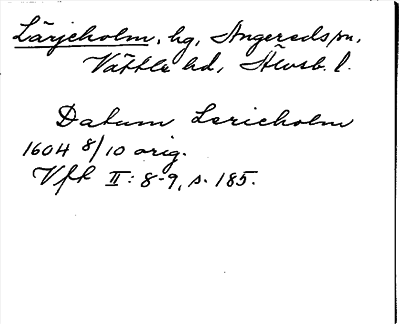 Lärjeholm, hg, Angereds sn,
Vättle hd, Älvsb. l.
Datum Lericholm
1604 8/10 orig.
Vfk II: 8-9, s. 185.